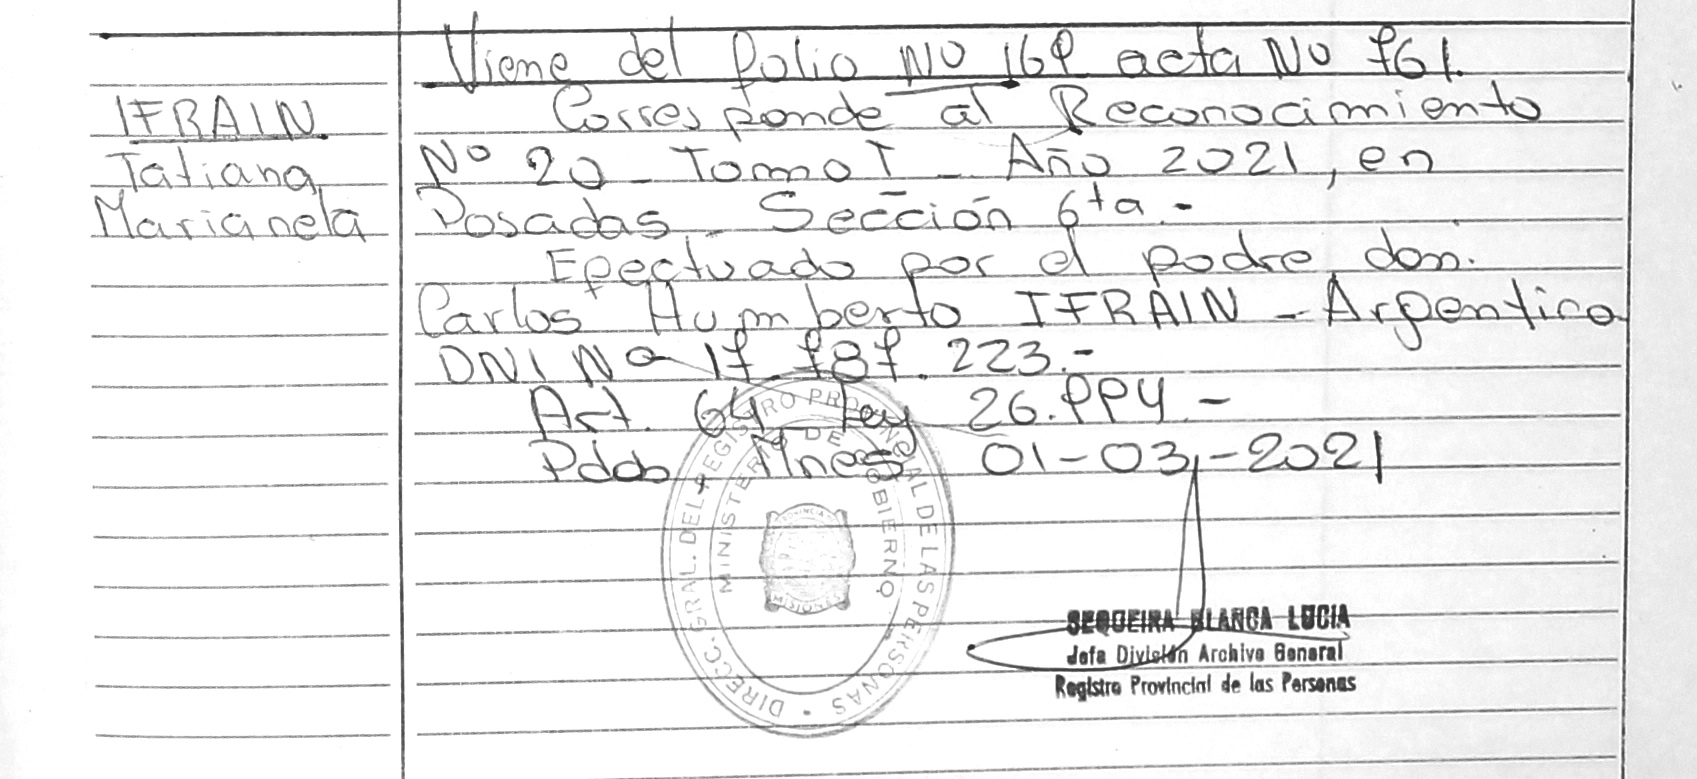 IFRAIN
Tatiana
Marianela
Viene del folio No 169 acta No 761.
Corresponde al Reconocimiento
Nº 20 - Tomo I - Año 2021, en
Posadas - Sección 6ta.-
Efectuado por el padre don.
Carlos Humberto IFRAIN - Argentino
DNI Nº 17.787.223.-
Art. 64 Ley 26.994 -
Pdas Mnes 01-03-2021
DIRECC. GRAL. DEL REGISTRO PROVINCIAL DE LAS PERSONAS
MINISTERIO DE GOBIERNO
PROVINCIA
MISIONES
SEQUEIRA BLANCA LUCIA
Jefa División Archivo General
Registro Provincial de las Personas